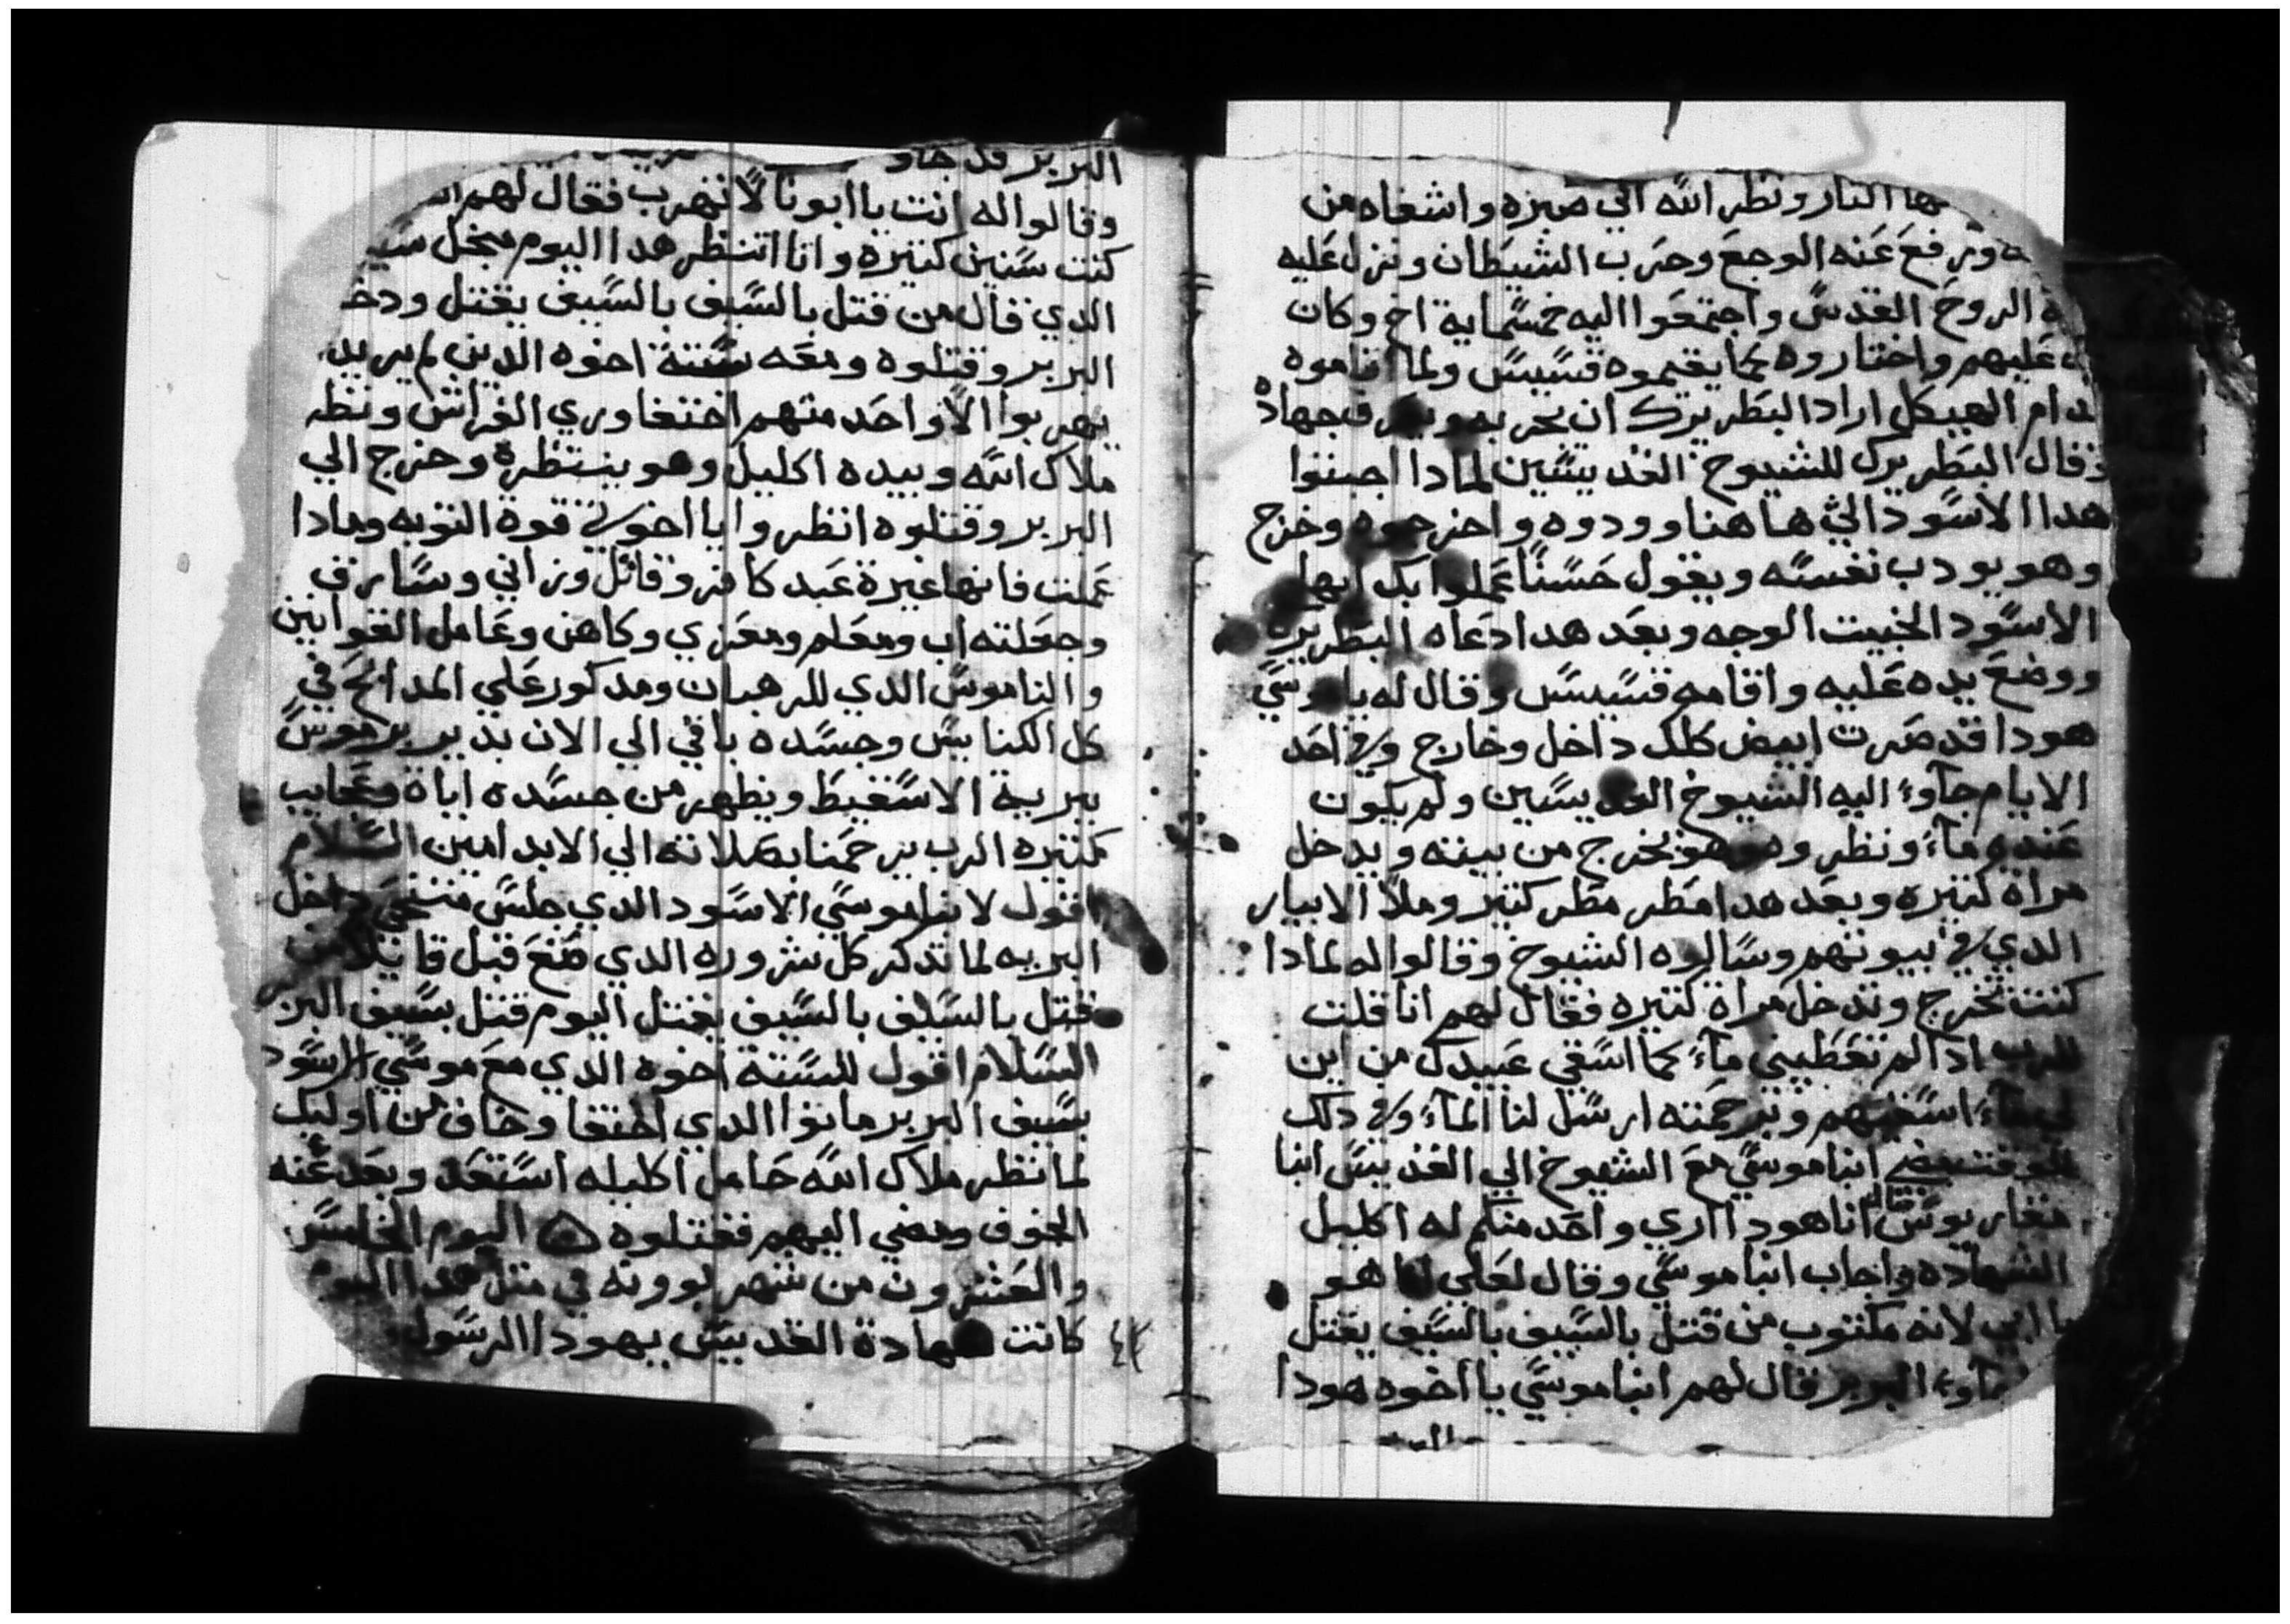 بها النار ونظر الله الي صبره واشفاه من
ورفع عنه الوجع وحرب الشيطان ونزل عليه
الروح القدس واجتمعوا اليه خمسمايه اخ وكان
عليهم واختاروه كما يقيموه قسيس ولما اقاموه
قدام الهيكل اراد البطريرك ان يجربه ويعرف جهاده
فقال البطريرك للشيوخ القديسين لمادا اجبتوا
هدا الاسود الي هاهنا وودوه واخرجوه وخرج
وهو يودب نفسه ويقول حسنًا عملوا بك ايها
الاسود الخبيت الوجه وبعد هدا دعاه البطريرك
ووضع يده عليه واقامه قسيس وقال له يا موسي
هودا قد صرت ابيض كلك داخل وخارج وفي احد
الايام جاوء اليه الشيوخ القديسين ولم يكون
عنده ماء ونظروه وهو يخرج من بيته ويدخل
مراة كتيره وبعد هدا مطر مطر كتير وملا الابيار
الدي في بيوتهم وسالوه الشيوخ وقالوا له لمادا
كنت تخرج وتدخل مراة كتيره فقال لهم انا قلت
للرب ادا لم تعطيني ماء كما اسقي عبيدك من اين
لي ماء اسقيهم وبرحمته ارسل لنا الماء وفي دلك
الوقت مضي ابنا موسي مع الشيوخ الي القديس ابنا
مقاريوس قال انا هودا اري واحد منكم له اكليل
الشهاده واجاب ابنا موسي وقال لعلي انا هو
يا ابي لانه مكتوب من قتل بالسيف بالسيف يقتل
جاوء البربر قال لهم ابنا موسي يا اخوه هودا
البربر قد جاو
وقالوا له انت يا ابونا لا تهرب فقال لهم
كنت سنين كتيره وانا انتظر هدا اليوم
الدي قال من قتل بالسيف بالسيف يقتل
البربر وقتلوه ومعه ستة اخوه الدين لم يريد
يهربوا الا واحد منهم اختفا وري الفراش ونظر
ملاك الله وبيده اكليل وهو ينتظره وخرج الي
البربر وقتلوه انظروا يا اخوتي قوة التوبه ومادا
عملت فانها غيرة عبد كافر وقاتل وزاني وسارق
وجعلته اب ومعلم ومعزي وكاهن وعامل القوانين
والناموس الدي للرهبان ومدكور علي المدابح في
كل الكنايس وجسده باقي الي الان بدير برموس
ببرية الاسقيط ويظهر من جسده اياة وعجايب
كتيره الرب يرحمنا بصلاته الي الابد امين السلام
اقول لابنا موسي الاسود الدي جلس متنحي داخل
البريه لما تدكر كل شروره الدي صنع قبل قايلا من
قتل بالسيف بالسيف يقتل اليوم قتل بسيف البر
السلام اقول للستة اخوه الدي مع موسي الاسود
بسيف البربر ماتوا الدي اختفا وخاف من اوليك
لما نظر ملاك الله حامل اكليله استعد وبعد عنه
الخوف ومضي اليهم فقتلوه اليوم الخامس
والعشرون من شهر بوونه في متل هدا اليوم
كانت شهادة القديس يهودا الرسول